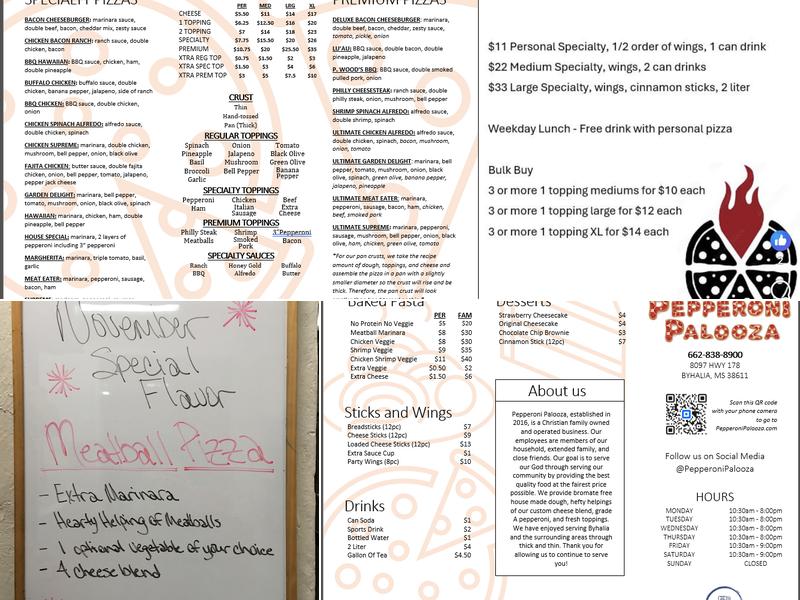 SPECIALTY PIZZAS
BACON CHEESEBURGER: marinara sauce,
double beef, bacon, cheddar mix, zesty sauce
CHICKEN BACON RANCH: ranch sauce, double
chicken, bacon
BBQ HAWAIIAN: BBQ sauce, ham, chicken,
double pineapple
BUFFALO CHICKEN: buffalo sauce, double
chicken, banana pepper, jalapeno, side of ranch
BBQ CHICKEN: BBQ sauce, double chicken,
onion
CHICKEN SPINACH ALFREDO: alfredo sauce,
double chicken, spinach
CHICKEN SUPREME: marinara, double chicken,
mushroom, bell pepper, onion, black olive
FAJITA CHICKEN: butter sauce, double fajita
chicken, onion, bell pepper, tomato, jalapeno,
pepper jack cheese
GARDEN DELIGHT: marinara, bell pepper,
tomato, mushroom, onion, black olive, spinach
HAWAIIAN: marinara, chicken, ham, double
pineapple, bell pepper
HOUSE SPECIAL: marinara, 2 layers of
pepperoni including 3" pepperoni
MARGHERITA: marinara, triple tomato, basil,
garlic
MEAT EATER: marinara, pepperoni, sausage,
bacon, ham
PER MED LRG XL
CHEESE $5.50 $11 $14 $17
1 TOPPING $6.25 $12.50 $16 $20
2 TOPPING $7 $14 $18 $23
SPECIALTY $7.75 $15.50 $20 $26
PREMIUM $10.75 $20 $25.50 $35
XTRA REG TOP $0.75 $1.50 $2 $3
XTRA SPEC TOP $1.50 $3 $4 $6
XTRA PREM TOP $3 $5 $7.5 $10
CRUST
Thin
Hand-tossed
Pan (Thick)
REGULAR TOPPINGS
Spinach Onion Tomato
Pineapple Jalapeno Black Olive
Basil Mushroom Green Olive
Broccoli Bell Pepper Banana
Garlic Pepper
SPECIALTY TOPPINGS
Pepperoni Chicken Beef
Ham Italian Extra
Sausage Cheese
PREMIUM TOPPINGS
Philly Steak Shrimp 3"Pepperoni
Meatballs Smoked Bacon
Pork
SPECIALTY SAUCES
Ranch Honey Gold Buffalo
BBQ Alfredo Butter
PREMIUM PIZZAS
DELUXE BACON CHEESEBURGER: marinara,
double beef, bacon, cheddar, zesty sauce,
tomato, pickle, onion
LU'AU: BBQ sauce, double bacon, double
pineapple, jalapeno
P. WOOD'S BBQ: BBQ sauce, double smoked
pulled pork, onion
PHILLY CHEESESTEAK: ranch sauce, double
philly steak, onion, mushroom, bell pepper
SHRIMP SPINACH ALFREDO: alfredo sauce,
double shrimp, spinach
ULTIMATE CHICKEN ALFREDO: alfredo sauce,
double chicken, spinach, bacon, mushroom,
onion, tomato
ULTIMATE GARDEN DELIGHT: marinara, bell
pepper, tomato, mushroom, onion, black
olive, spinach, green olive, banana pepper,
jalapeno, pineapple
ULTIMATE MEAT EATER: marinara,
pepperoni, sausage, bacon, ham, chicken,
beef, smoked pork
ULTIMATE SUPREME: marinara, pepperoni,
sausage, mushroom, bell pepper, onion, black
olive, ham, chicken, green olive, tomato
*For our pan crusts, we take the recipe
amount of dough, toppings, and cheese and
assemble the pizza in a pan with a slightly
smaller diameter so the crust will rise and be
thick. Therefore, the pan crust will look
$11 Personal Specialty, 1/2 order of wings, 1 can drink
$22 Medium Specialty, wings, 2 can drinks
$33 Large Specialty, wings, cinnamon sticks, 2 liter
Weekday Lunch - Free drink with personal pizza
Bulk Buy
3 or more 1 topping mediums for $10 each
3 or more 1 topping large for $12 each
3 or more 1 topping XL for $14 each
November
Special
Flavor
Meatball Pizza
- Extra Marinara
- Hearty Helping of Meatballs
- 1 optional vegetable of your choice
- 4 cheese blend
Baked Pasta
PER FAM
No Protein No Veggie $5 $20
Meatball Marinara $8 $30
Chicken Veggie $8 $30
Shrimp Veggie $9 $35
Chicken Shrimp Veggie $11 $40
Extra Veggie $0.50 $2
Extra Cheese $1.50 $6
Sticks and Wings
Breadsticks (12pc) $7
Cheese Sticks (12pc) $9
Loaded Cheese Sticks (12pc) $13
Extra Sauce Cup $1
Party Wings (8pc) $10
Drinks
Can Soda $1
Sports Drink $2
Bottled Water $1
2 Liter $4
Gallon Of Tea $4.50
Desserts
Strawberry Cheesecake $4
Original Cheesecake $4
Chocolate Chip Brownie $3
Cinnamon Stick (12pc) $7
About us
Pepperoni Palooza, established in
2016, is a Christian family owned
and operated business. Our
employees are members of our
household, extended family, and
close friends. Our goal is to serve
our God through serving our
community by providing the best
quality food at the fairest price
possible. We provide bromate free
house made dough, hefty helpings
of our custom cheese blend, grade
A pepperoni, and fresh toppings.
We have enjoyed serving Byhalia
and the surrounding areas through
thick and thin. Thank you for
allowing us to continue to serve
you!
PEPPERONI
PALOOZA
662-838-8900
8097 HWY 178
BYHALIA, MS 38611
Scan this QR code
with your phone camera
to go to
PepperoniPalooza.com
Follow us on Social Media
@PepperoniPalooza
HOURS
MONDAY 10:30am - 8:00pm
TUESDAY 10:30am - 8:00pm
WEDNESDAY 10:30am - 8:00pm
THURSDAY 10:30am - 8:00pm
FRIDAY 10:30am - 9:00pm
SATURDAY 10:30am - 9:00pm
SUNDAY CLOSED